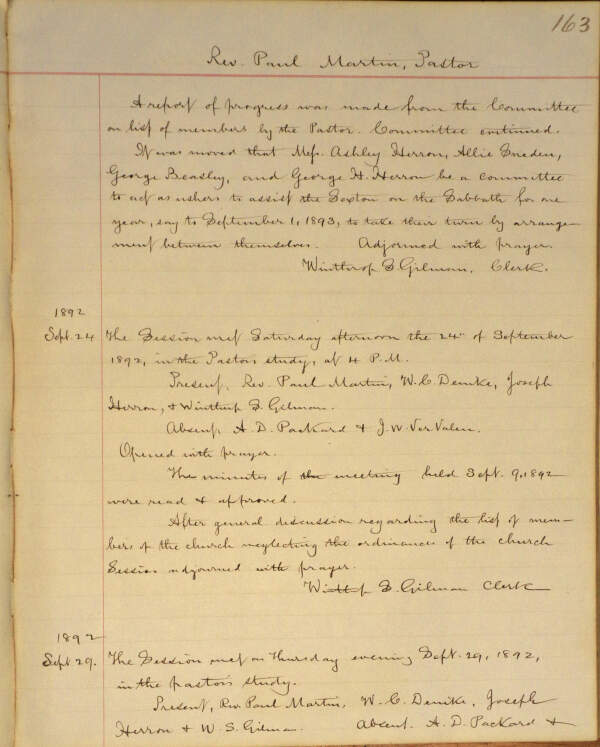 163
Rev. Paul Martin, Pastor
A report of progress was made from the Committee
on list of members by the Pastor. Committee continued.
It was moved that Mess. Ashley Herron, Allie Sneden,
George Beasley, and George H. Herron be a committee
to act as ushers to assist the Sexton on the Sabbath for one
year, say to September 1, 1893, to take their turn by arrange-
ment between themselves. Adjourned with prayer.
Winthrop S. Gilman, Clerk.
1892
Sept. 24 The Session met Saturday afternoon the 24" of September
1892, in the Pastors study, at 4 P.M.
Present, Rev. Paul Martin, W. C. Demke, Joseph
Herron, & Winthrop S. Gilman.
Absent, A. D. Packard & J. W. Ver Valen.
Opened with prayer.
The minutes of the meeting held Sept. 9, 1892
were read & approved.
After general discussion regarding the list of mem-
bers of the church neglecting the ordinances of the church
Session adjourned with prayer.
Winthrop S. Gilman Clerk
1892
Sept. 29. The Session met on Thursday evening Sept. 29, 1892,
in the pastors study.
Present, Rev. Paul Martin, W. C. Demike, Joseph
Herron & W. S. Gilman. Absent. A. D. Packard &